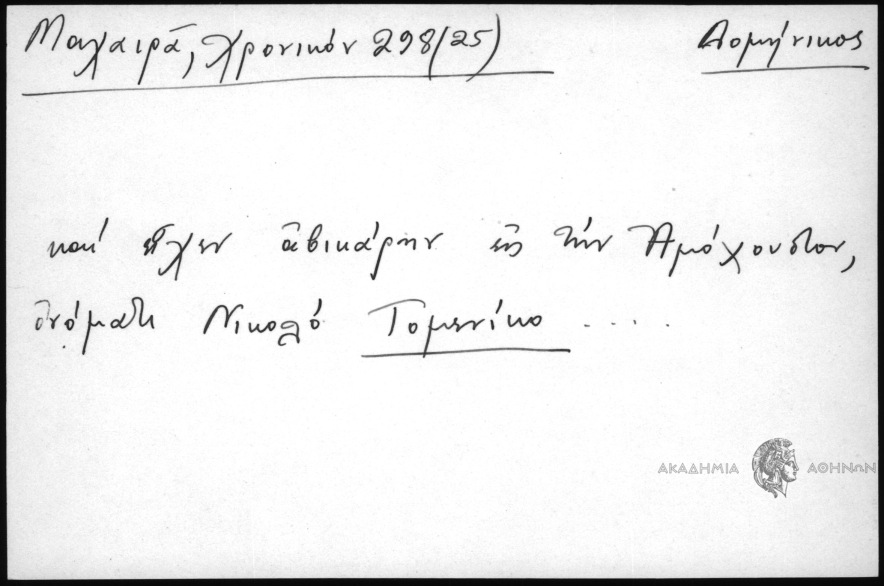 Μαχαιρᾶ, Χρονικόν 298(25)
Δομήνικος
καί εἶχεν ἀβικάρην εἰς τήν Ἀμόχουστον,
ὀνόματι Νικολό Τομενίκο ....
ΑΚΑΔΗΜΙΑ ΑΘΗΝΩΝ